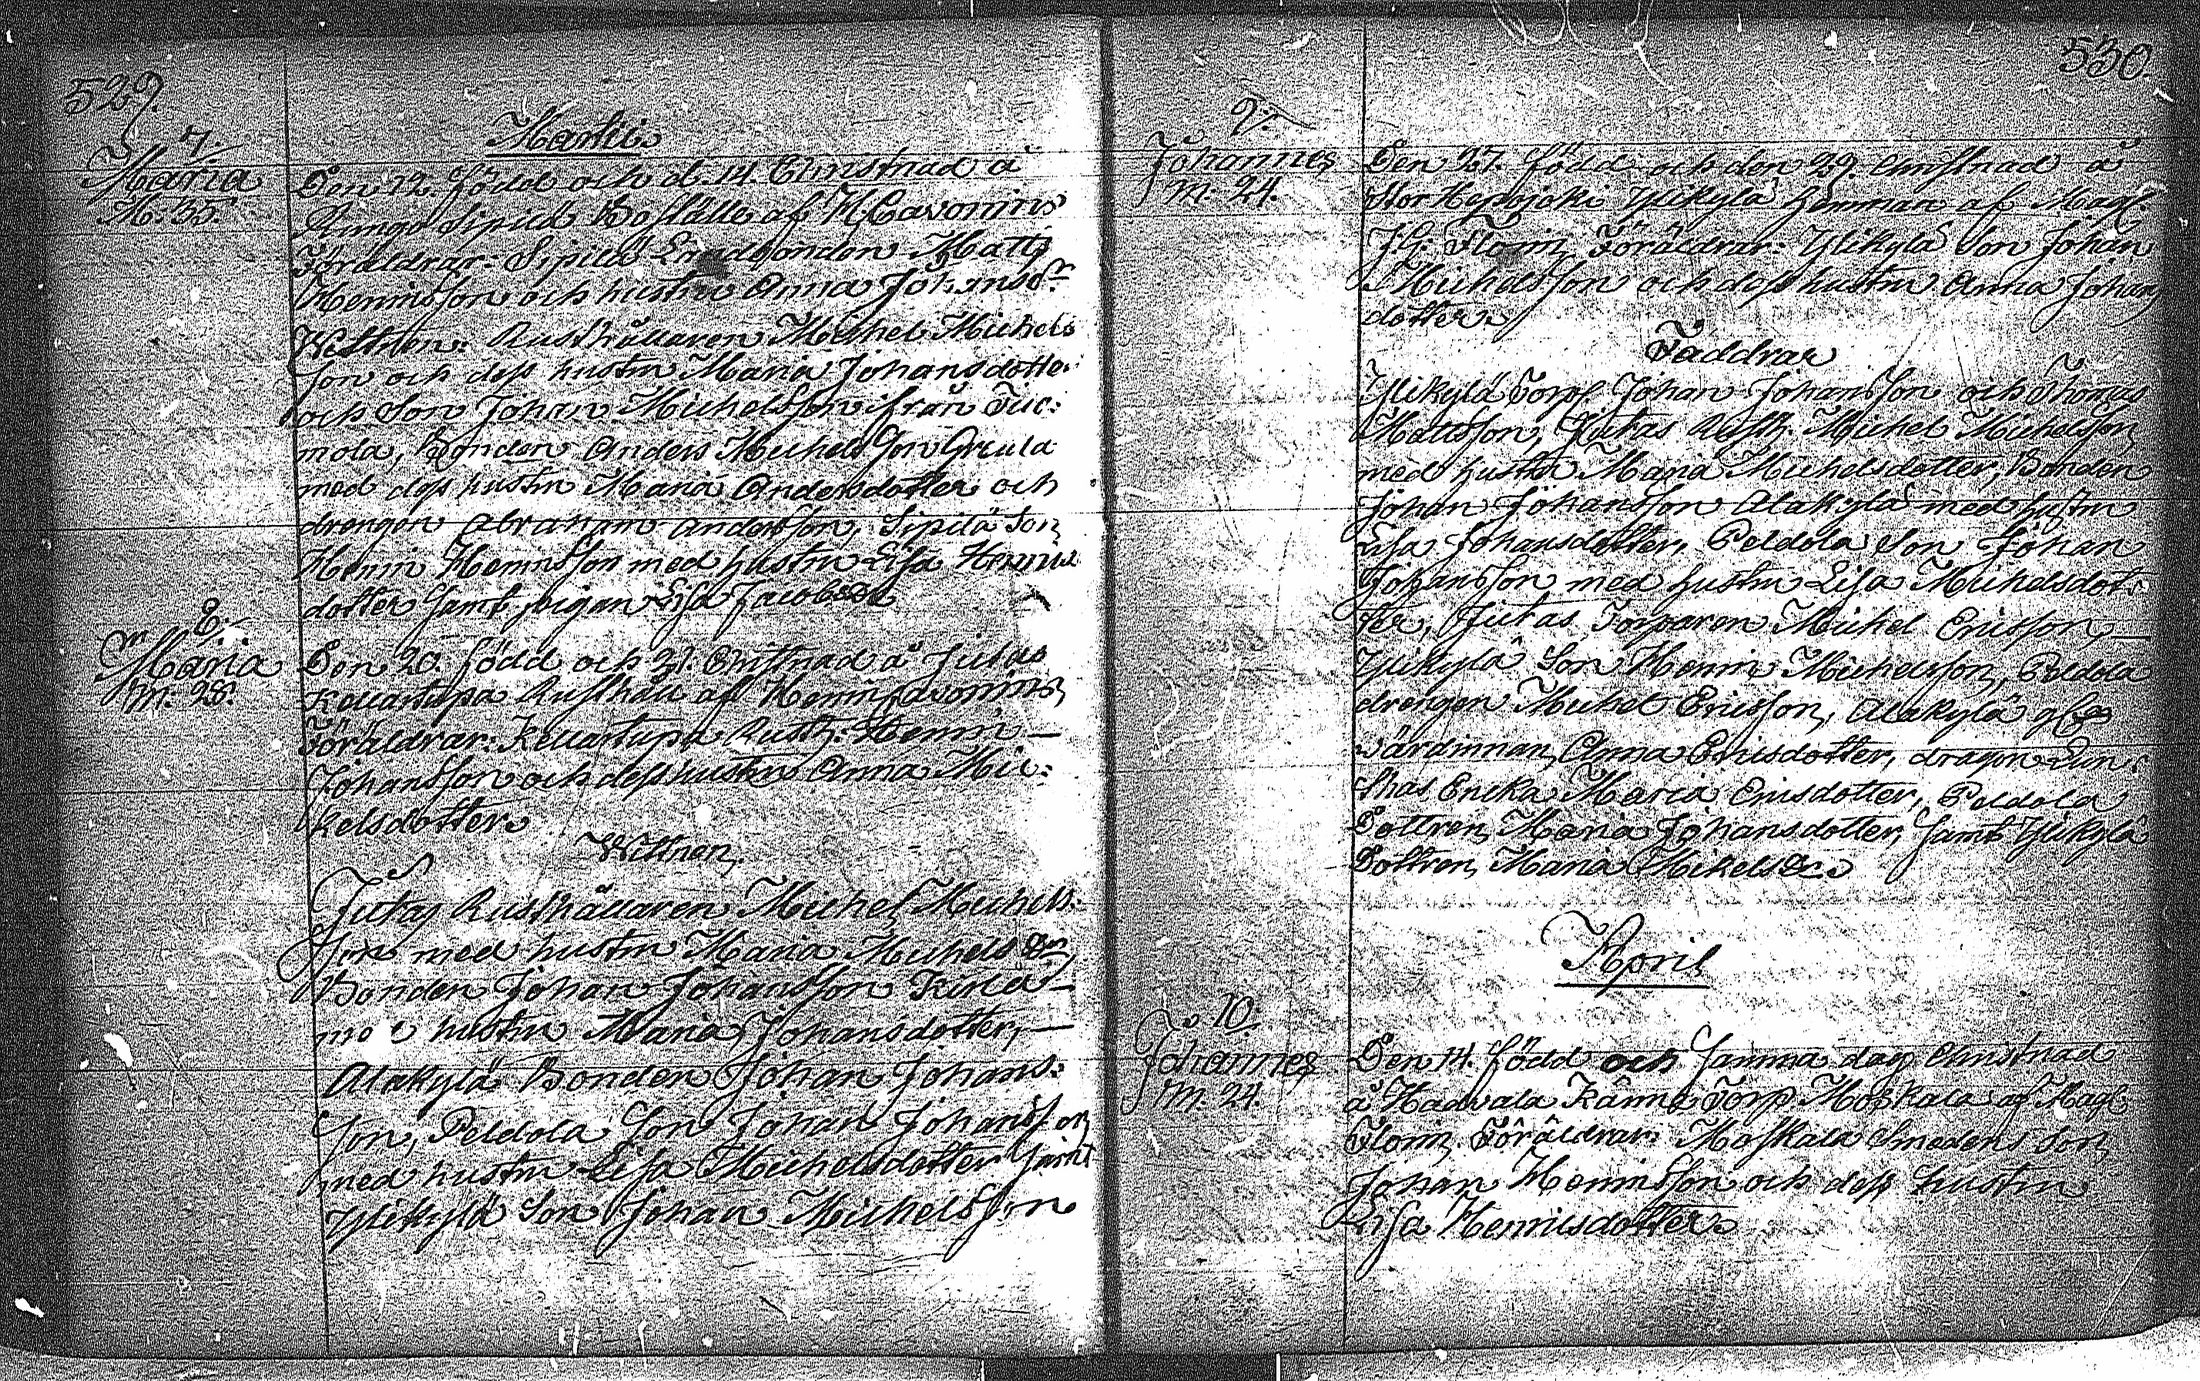 529.
Martii
7.
Maria
M. 35.
Den 12. född och d. 14. Christnad å
Sipilä Boställe af H. Cavonius
Föräldrar: Sipilä Landbonden Matts
Henricsson och hustru Anna Johansdr
Wittnen: Rusthållaren Michel Michels
son och dess hustru Maria Johansdotter
och Son Johan Michelsson ifrån Tuo:
mola, Bonden Anders Michelsson
med dess hustru Maria Andersdotter och
drengen Abraham Andersson, Sipilä Son
Henric Henricsson med hustru Lisa Henrics
dotter samt pigan Lisa Jacobsdr
8.
Maria
M. 28.
Den 20. född och 21. Christnad å Jutas
Kellartupa Rusthåll af Henric Cavonius,
Föräldrar: Kellartupa Rusth: Henric
Johansson och dess hustru Anna Mic:
helsdotter
Wittnen,
Jutas Rusthållaren Michel Michels:
son med hustru Maria Michels dr,
Bonden Johan Johansson
hustru Maria Johansdotter,
Alakylä Bonden Johan Johans:
son, Peldola Son Johan Johansson
med hustru Lisa Michelsdotter samt
Ylikylä Son Johan Michelsson
530.
9.
Johannes
M. 24.
Den 27. född och den 29. Christnad å
Stor Hepojoki Ylikylä hemman af Mag.
J. G. Florin, Föräldrar: Ylikylä Son Johan
Michelsson och dess hustru Anna Johans
dotter
Faddrar
Ylikylä Torp. Johan Johansson och Thomas
Mattsson, Jutas Rusth. Michel Michelsson
med hustru Maria Michelsdotter, Bonden
Johan Johansson Alakylä med hustru
Lisa Johansdotter, Peldola Son Johan
Johansson med hustru Lisa Michelsdot:
ter, Jutas Torparen Michel Ericsson
Ylikylä Son Henric Michelsson, Peldola
drengen Michel Ericsson, Alakylä
värdinnan Anna Ericsdotter, dragon
Enka Maria Ericsdotter, Peldola
Dottren Maria Johansdotter, samt Ylikylä
Dottren Maria Mikelsdr.
April
10.
Johannes
M. 24.
Den 14. född och samma dag Christnad
å Hadvala Torp Moskala af Mag.
Florin. Föräldrar: Moskala Smedens Son
Johan Henricsson och dess hustru
Lisa Henricsdotter